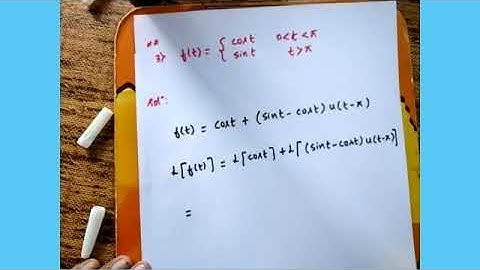 **
3) f(t) = { cost 0<t<π
sint t>π
Sol":
f(t) = cost + (sint-cost) u(t-π)
L[f(t)] = L[cost] + L[(sint-cost)u(t-π)]
=